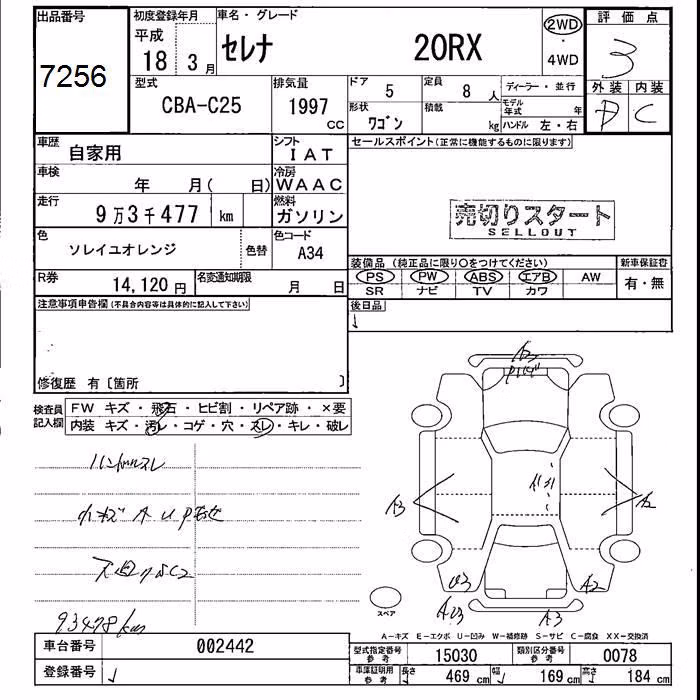 出品番号 初度登録年月 車名・グレード 評価点
7256 平成 18年 3月 セレナ 20RX 2WD・4WD 3
外装 内装
D C
型式 排気量 ドア 定員 ディーラー・並行
CBA-C25 1997cc 5 8人 モデル年式 年
形状 積載
ワゴン kg ハンドル 左・右
車歴 自家用 シフト IAT セールスポイント(正常に機能するものに限ります)
車検 年 月( 日) 冷房 WAAC
走行 9万3千477 km 燃料 ガソリン
売切りスタート
SELLOUT
色 ソレイユオレンジ 色替 色コード A34
装備品(純正品に限り○をつけてください) 新車保証書
PS PW ABS エアB AW 有・無
SR ナビ TV カワ
R券 14,120円 名変通知期限 月 日
後日品
注意事項申告欄(不具合内容等は具体的に記入して下さい)
修復歴 有〔箇所 〕
検査員記入欄 FW キズ・飛石・ヒビ割・リペア跡・×要
内装 キズ・汚レ・コゲ・穴・スレ・キレ・破レ
ハンドルスレ
小キズ A U P
93478km
A3
A3
A2
U3
A2
A3
スペア
A-キズ E-エクボ U-凹み W-補修跡 S-サビ C-腐食 XX-交換済
車台番号 002442
登録番号
型式指定番号 参考 15030 類別区分番号 参考 0078
車庫証明用 参考 長さ 469cm 幅 169cm 高さ 184cm